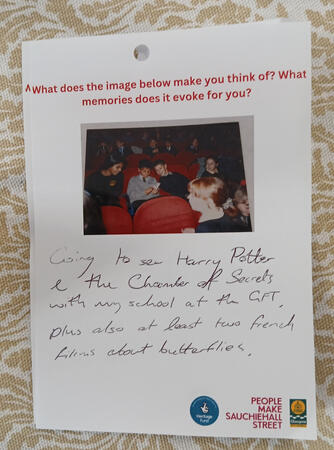 What does the image below make you think of? What
memories does it evoke for you?
Going to see Harry Potter
& the Chamber of Secrets
with my school at the GFT,
plus also at least two french
films about butterflies.
Heritage
Fund
PEOPLE
MAKE
SAUCHIEHALL
STREET